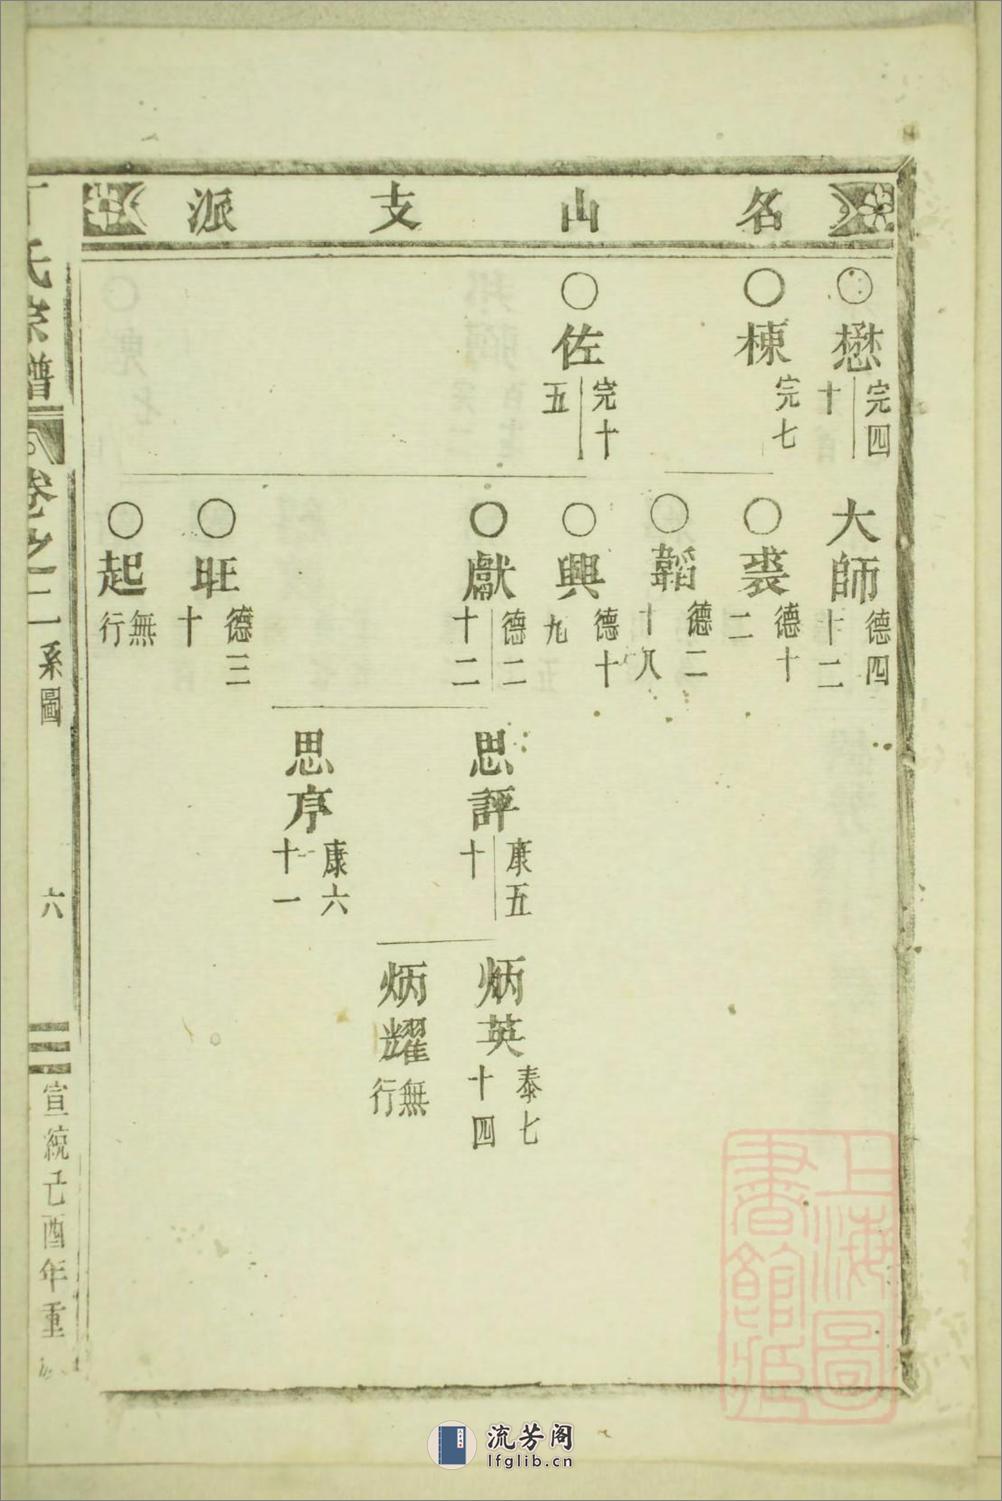 名山支派
○懋
完四
十
○棟
完七
○佐
完十
五
大師
德四
十二
○裘
德十
二
○韜
德二
十八
○興
德十
九
○獻
德二
十二
○旺
德三
十
○起
無
行
思評
康五
十
思序
康六
十一
炳英
泰七
十四
炳耀
無
行
氏宗譜
卷之二
系圖
六
宣統己酉年重
上海圖
書館藏
流芳阁
lfglib.cn